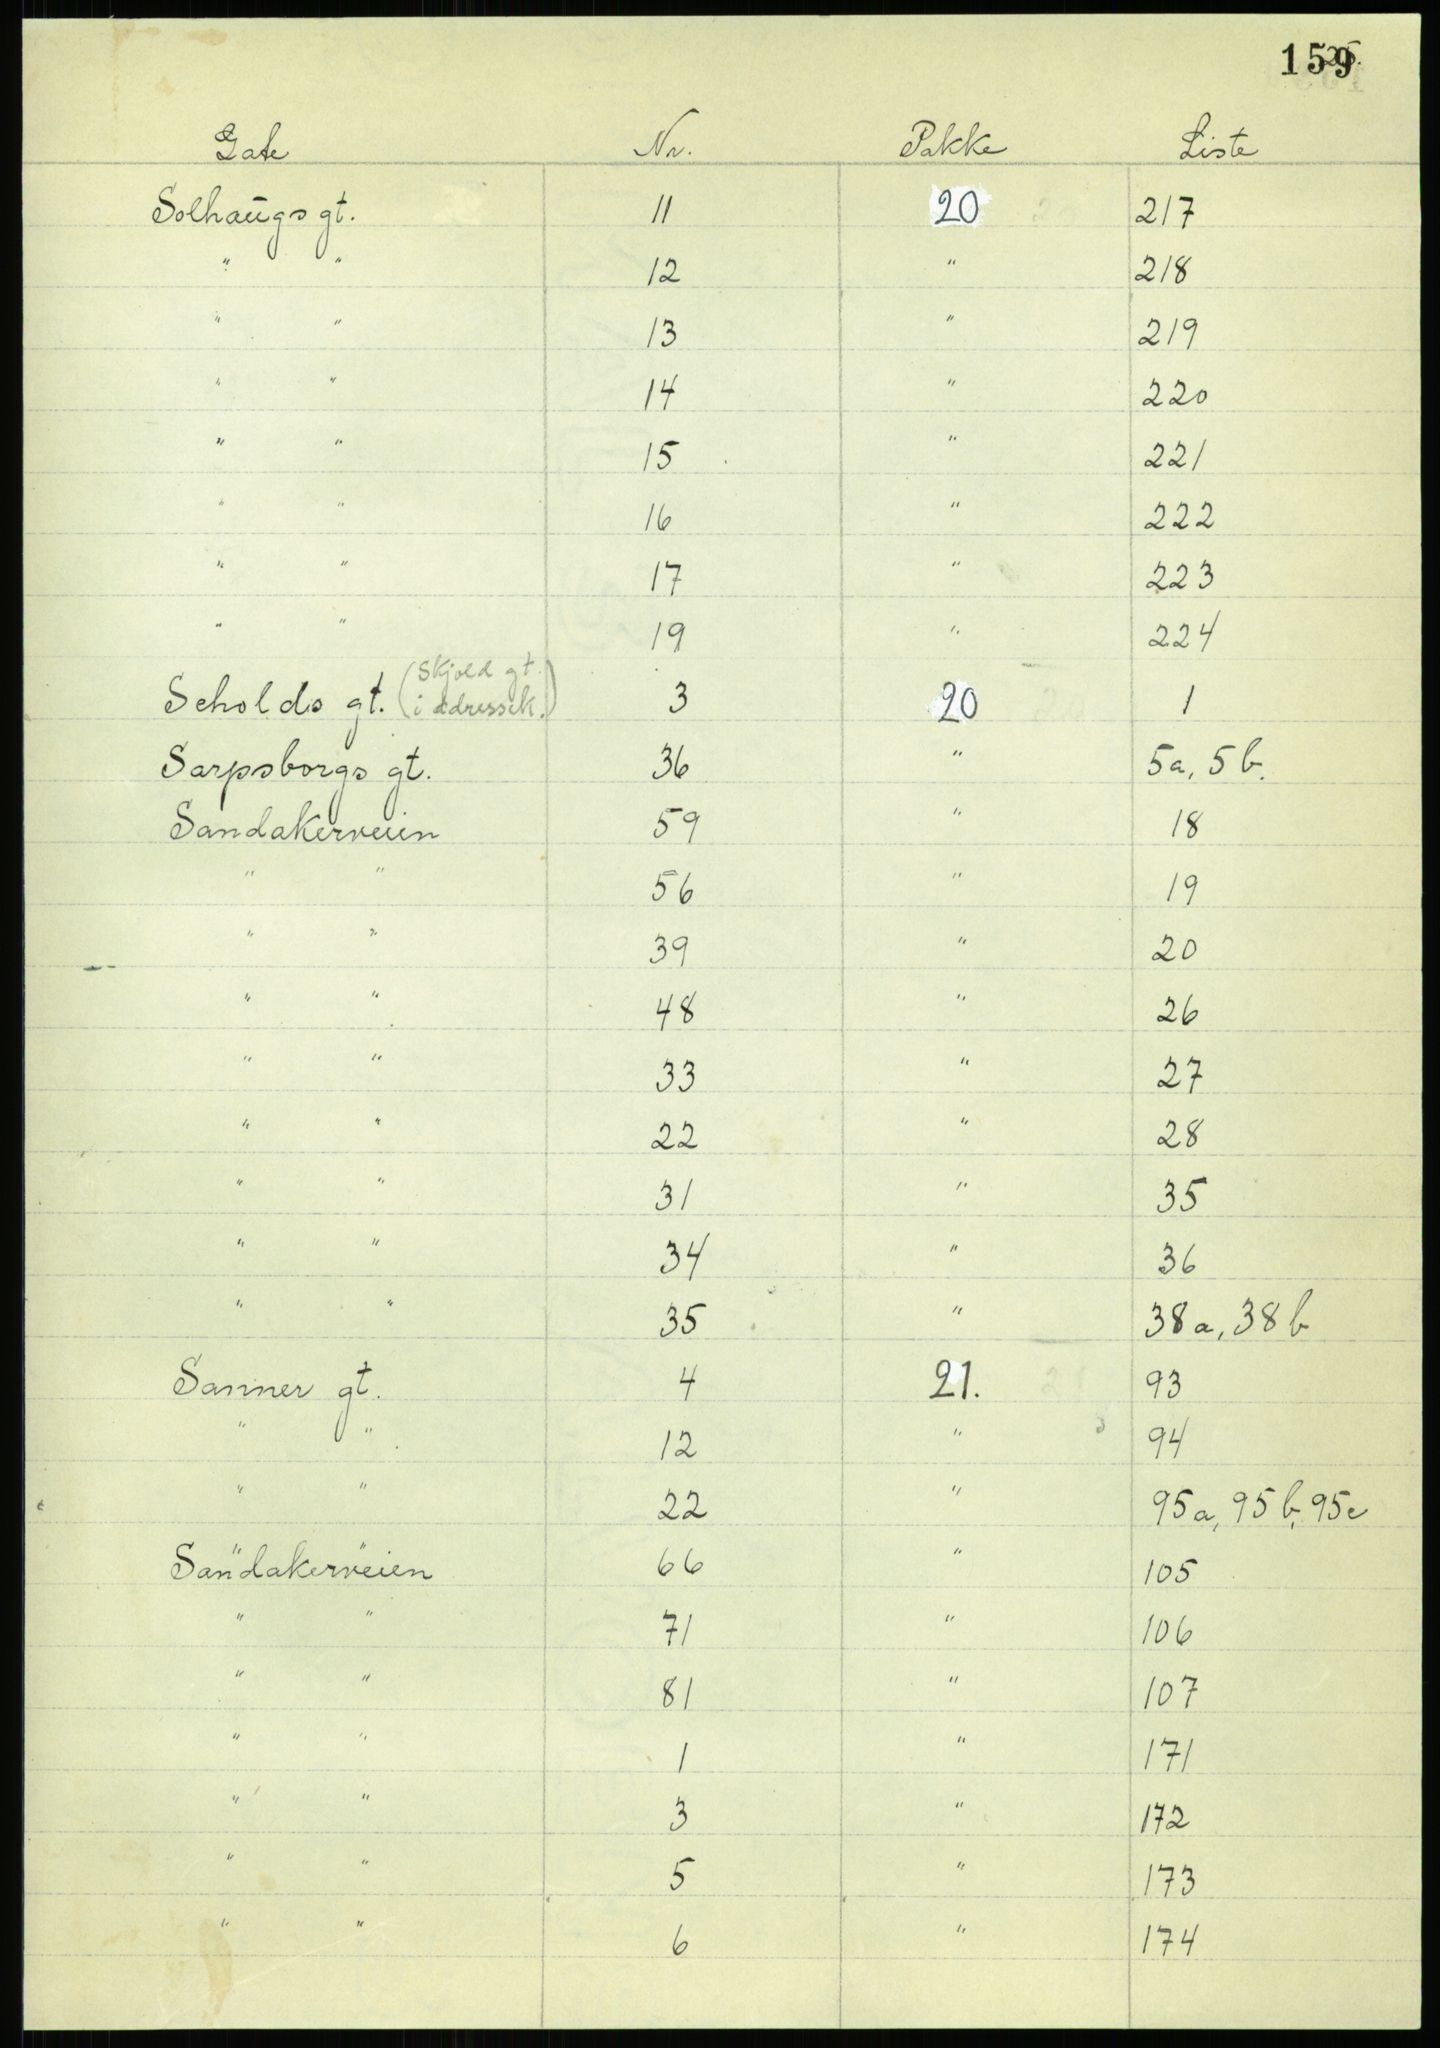 159
Gate Nr. Pakke Liste
Solhaugs gt. 11 20 217
" " 12 " 218
" " 13 " 219
" " 14 " 220
" " 15 " 221
" " 16 " 222
" " 17 " 223
" " 19 " 224
Scholds gt. (Skjold gt. i adressek.) 3 20 1
Sarpsborgs gt. 36 " 5a, 5b.
Sandakerveien 59 " 18
" " 56 " 19
" " 39 " 20
" " 48 " 26
" " 33 " 27
" " 22 " 28
" " 31 " 35
" " 34 " 36
" " 35 " 38a, 38b
Sanner gt. 4 21. 93
" " 12 " 94
" " 22 " 95a, 95b, 95c
Sandakerveien 66 " 105
" " 71 " 106
" " 81 " 107
" " 1 " 171
" " 3 " 172
" " 5 " 173
" " 6 " 174